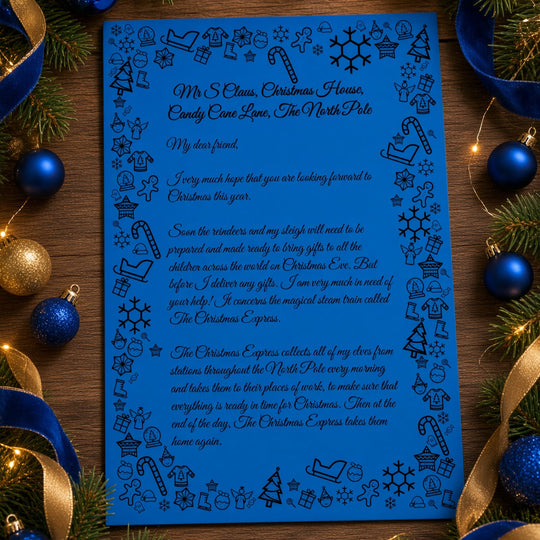 Mr S Claus, Christmas House,
Candy Cane Lane, The North Pole
My dear friend,
I very much hope that you are looking forward to
Christmas this year.
Soon the reindeers and my sleigh will need to be
prepared and made ready to bring gifts to all the
children across the world on Christmas Eve. But
before I deliver any gifts, I am very much in need of
your help! It concerns the magical steam train called
The Christmas Express.
The Christmas Express collects all of my elves from
stations throughout the North Pole every morning
and takes them to their places of work, to make sure that
everything is ready in time for Christmas. Then at the
end of the day, The Christmas Express takes them
home again.